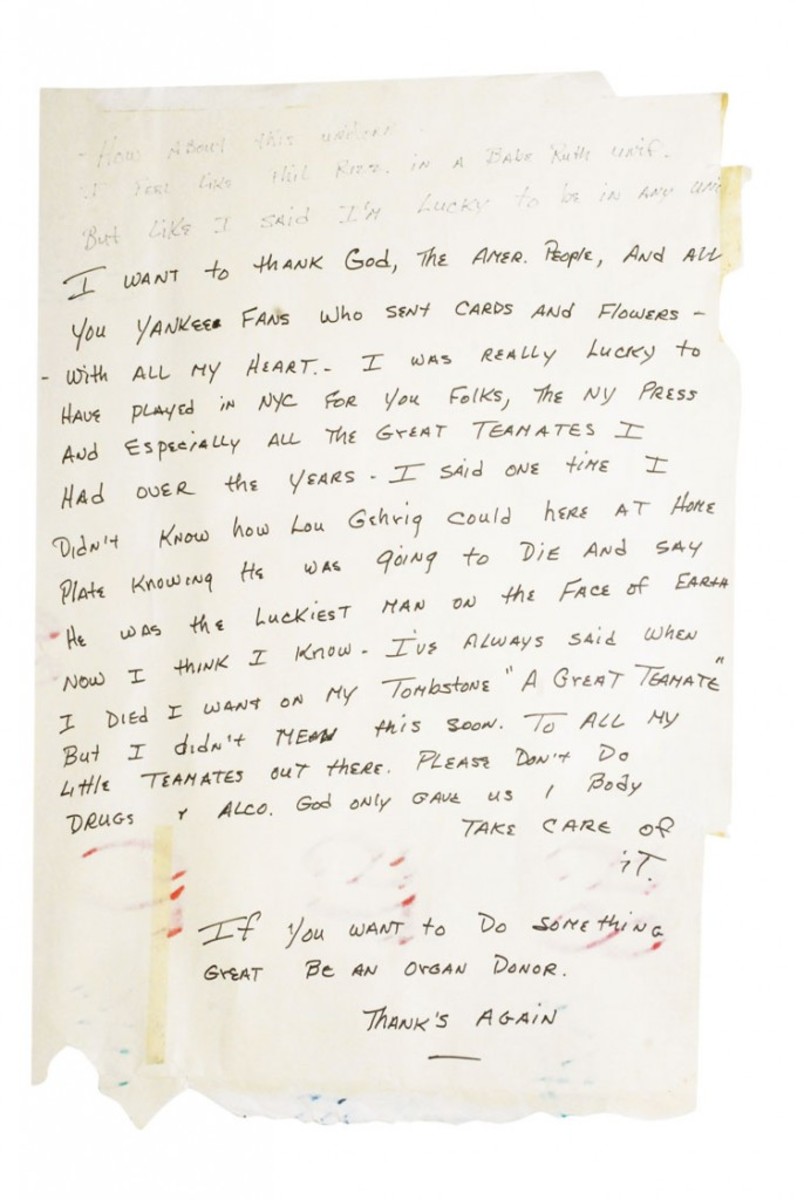 - How About this uniform.
I Feel like Phil Rizz. in A Babe Ruth unif.
But Like I said I'm Lucky to be in any uni
I WANT to thANK God, The AMER. People, And All
You YANKees FANS Who SENt CARDS ANd Flowers -
- With ALL MY HEART.- I WAS REALLY Lucky to
HAVE PlAYEd iN NYC FOR You Folks, The NY PRESS
ANd EspeciAlly ALL The GrEAT TEAMATES I
HAd OVER the YEARS - I SAid ONE tiME I
Didn't KNow how Lou Gehrig could here AT HOME
PlAte KNowiNg He WAS going to DiE ANd SAY
He WAS the Luckiest MAN ON the FACE of EARtH
Now I thiNK I KNow - I've ALWAYS said when
I DiEd I WANt ON MY TombstoNE "A GrEAT TEAMATE"
But I didn't MEAN this soon. To ALL MY
Little TEAMATES out there. PlEASE DoN't Do
DRUGS + ALCO. God oNly GAVE us 1 Body
TAKE CARE of
iT.
If You WANT to Do SoME thiNG
GrEAT BE AN OrgAN DoNoR.
THANK'S AGAIN